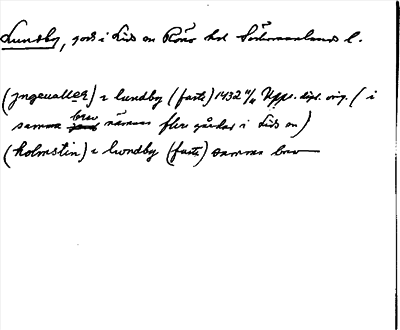 Lundby, gods i Lids sn Rönö hd Södermanlands l.
(jngeualler) i lundby (faste) 1432 4/4 Upps. dipl. orig. (i
samma brev nämnas fler gårdar i Lids sn)
(holmstin) i lwndby (faste) samma brev